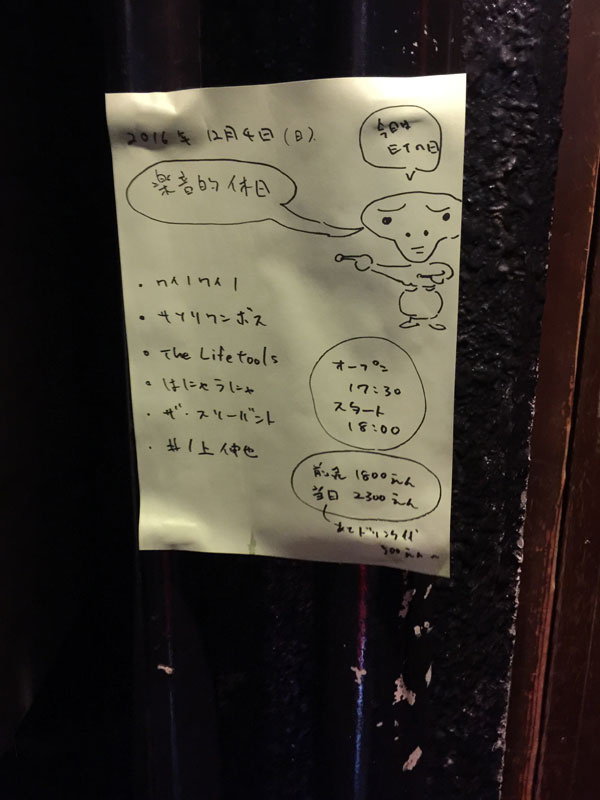 2016年 12月4日(日)
今日は
ETの日
楽音的休日
・ワイノワイノ
・サイリクンボス
・The Lifetools
・はにゃらにゃ
・ザ・スリーバント
・井上仲也
オープン
17:30
スタート
18:00
前売 1800えん
当日 2300えん
ドリンク代
500えん